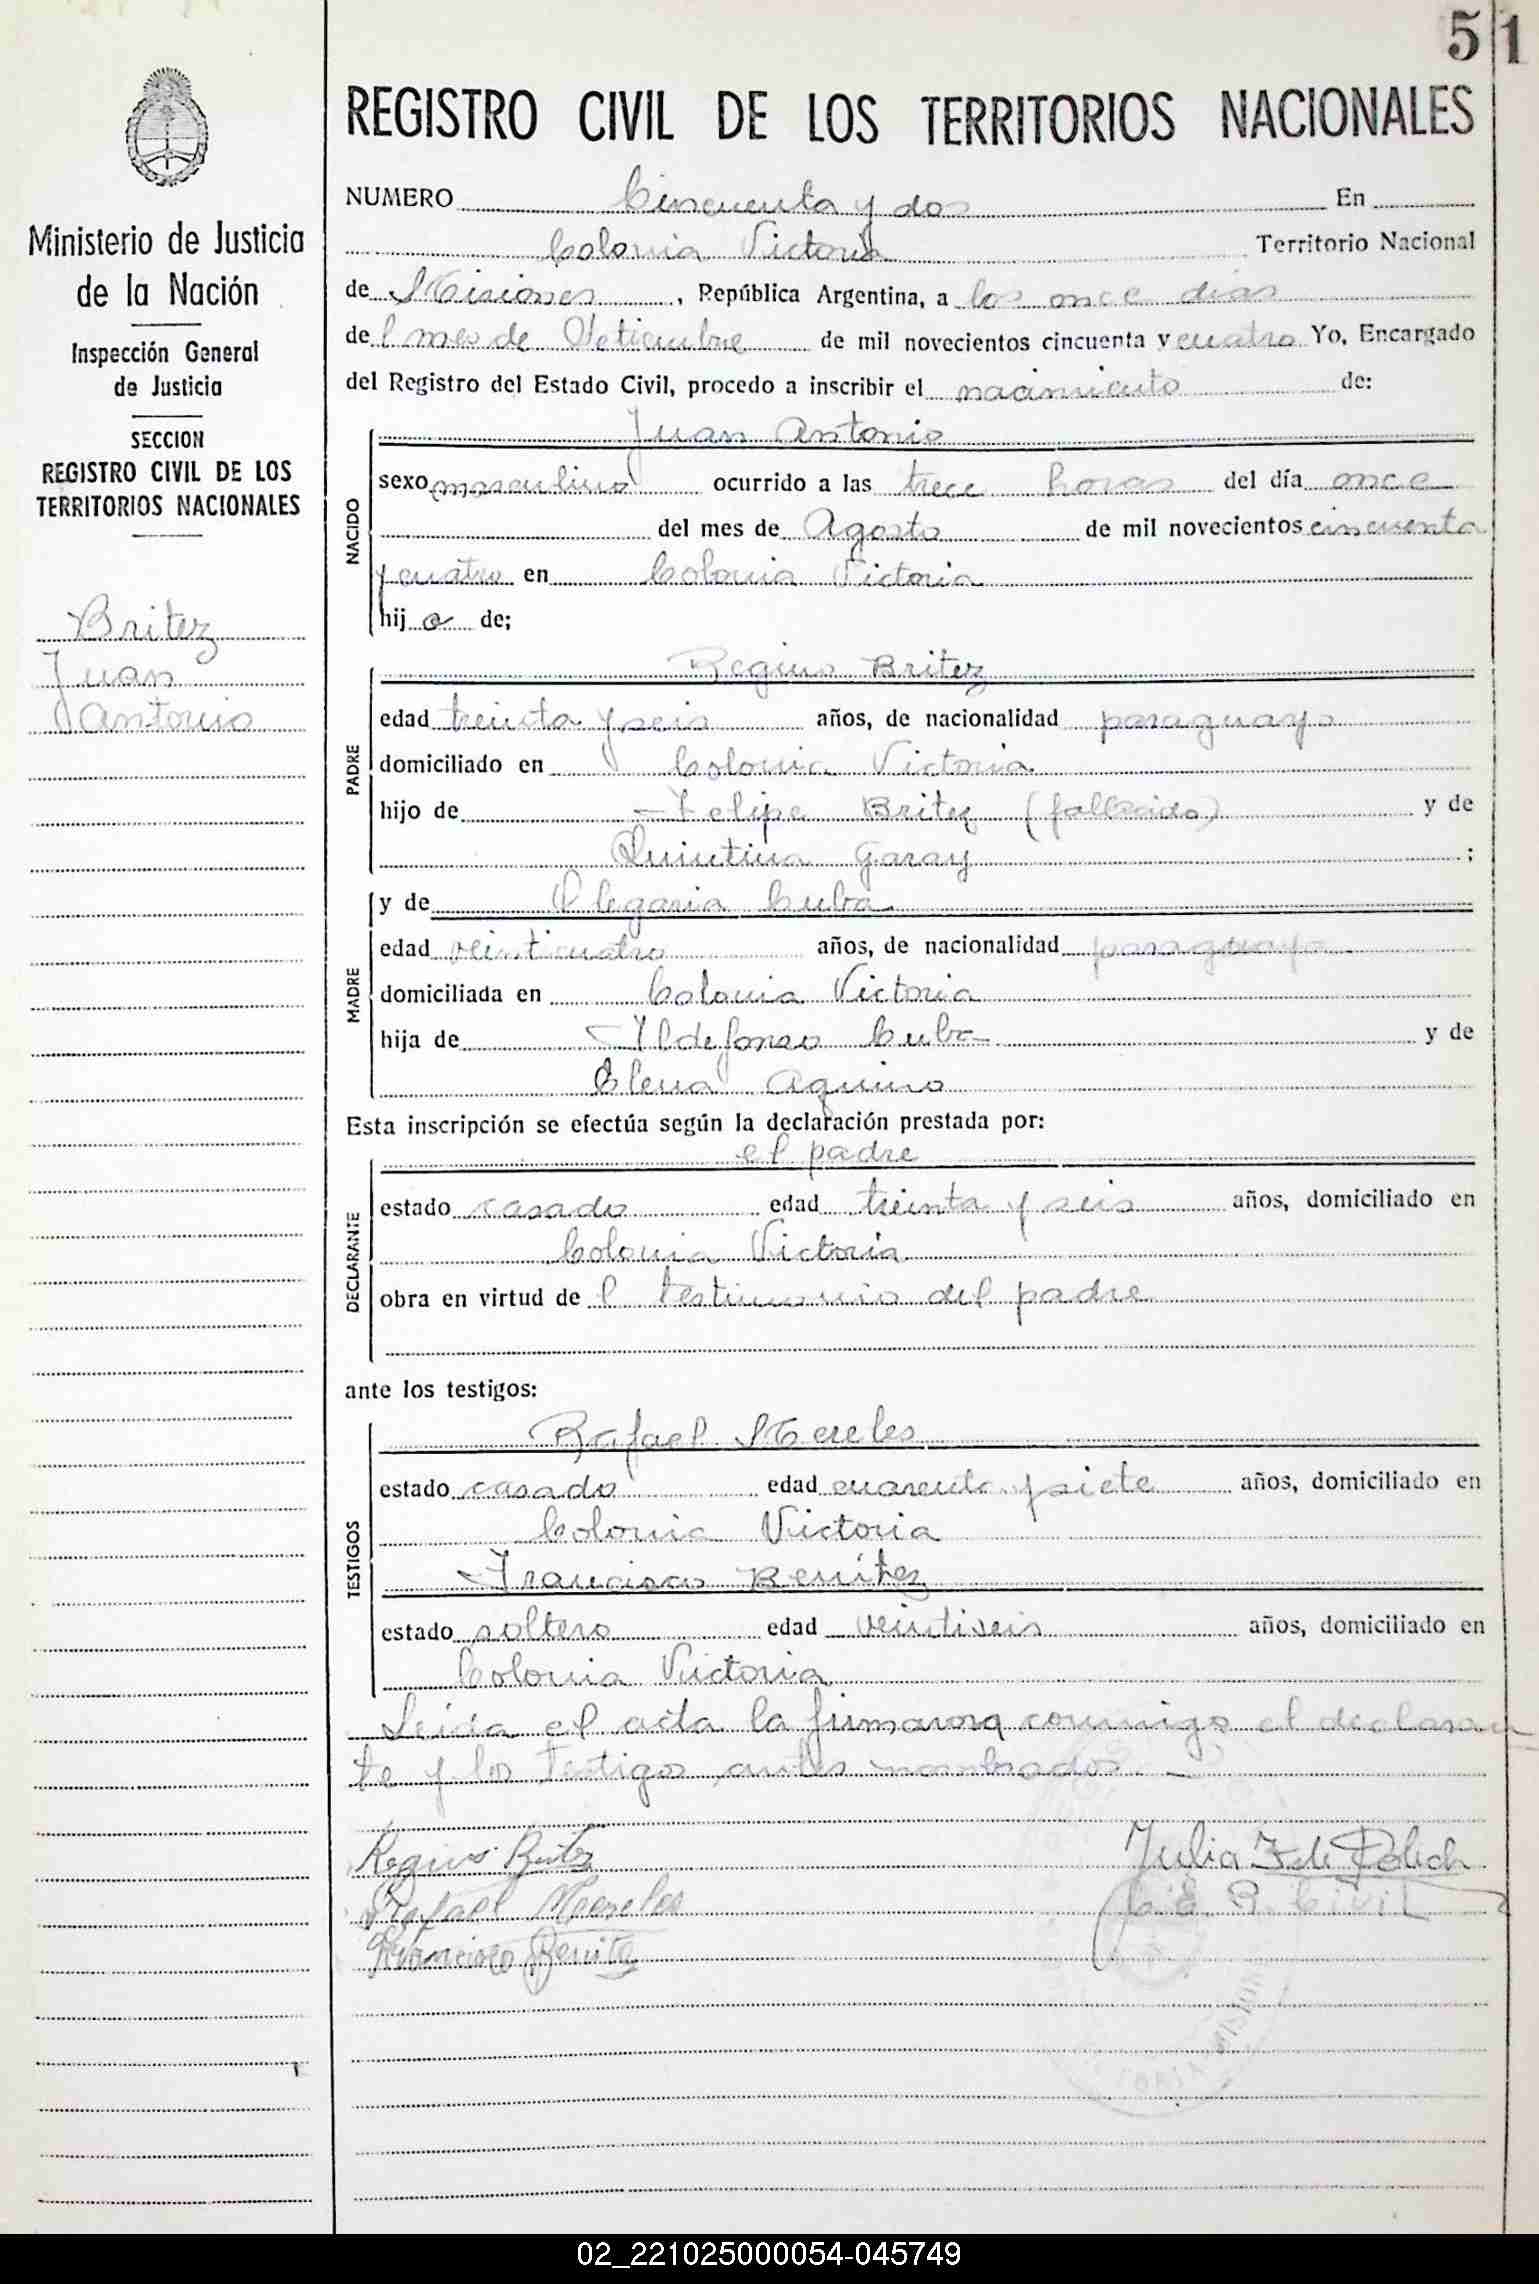 51
REGISTRO CIVIL DE LOS TERRITORIOS NACIONALES
Ministerio de Justicia
de la Nación
Inspección General
de Justicia
SECCION
REGISTRO CIVIL DE LOS
TERRITORIOS NACIONALES
Britez
Juan
Antonio
NUMERO Cincuenta y dos En
Colonia Victoria Territorio Nacional
de Misiones, República Argentina, a los once días
del mes de Setiembre de mil novecientos cincuenta y cuatro Yo, Encargado
del Registro del Estado Civil, procedo a inscribir el nacimiento de:
NACIDO
Juan Antonio
sexo masculino ocurrido a las trece horas del día once
del mes de Agosto de mil novecientos cincuenta
y cuatro en Colonia Victoria
hijo de;
PADRE
Regino Britez
edad treinta y seis años, de nacionalidad paraguayo
domiciliado en Colonia Victoria
hijo de Felipe Britez (fallecido) y de
Quintina Garay ;
MADRE
y de Olegaria Cuba
edad veinticuatro años, de nacionalidad paraguaya
domiciliada en Colonia Victoria
hija de Ildefonso Cuba y de
Elena Aquino
Esta inscripción se efectúa según la declaración prestada por:
DECLARANTE
el padre
estado casado edad treinta y seis años, domiciliado en
Colonia Victoria
obra en virtud del testimonio del padre
ante los testigos:
TESTIGOS
Rafael Mereles
estado casado edad cuarenta y siete años, domiciliado en
Colonia Victoria
Francisco Benítez
estado soltero edad veintiseis años, domiciliado en
Colonia Victoria
Leida el acta la firmaron conmigo el declaran
te y los testigos antes nombrados.
Regino Britez
Julia F. de
Rafael Mereles
E. R. Civil
Francisco Benitez
02_221025000054-045749